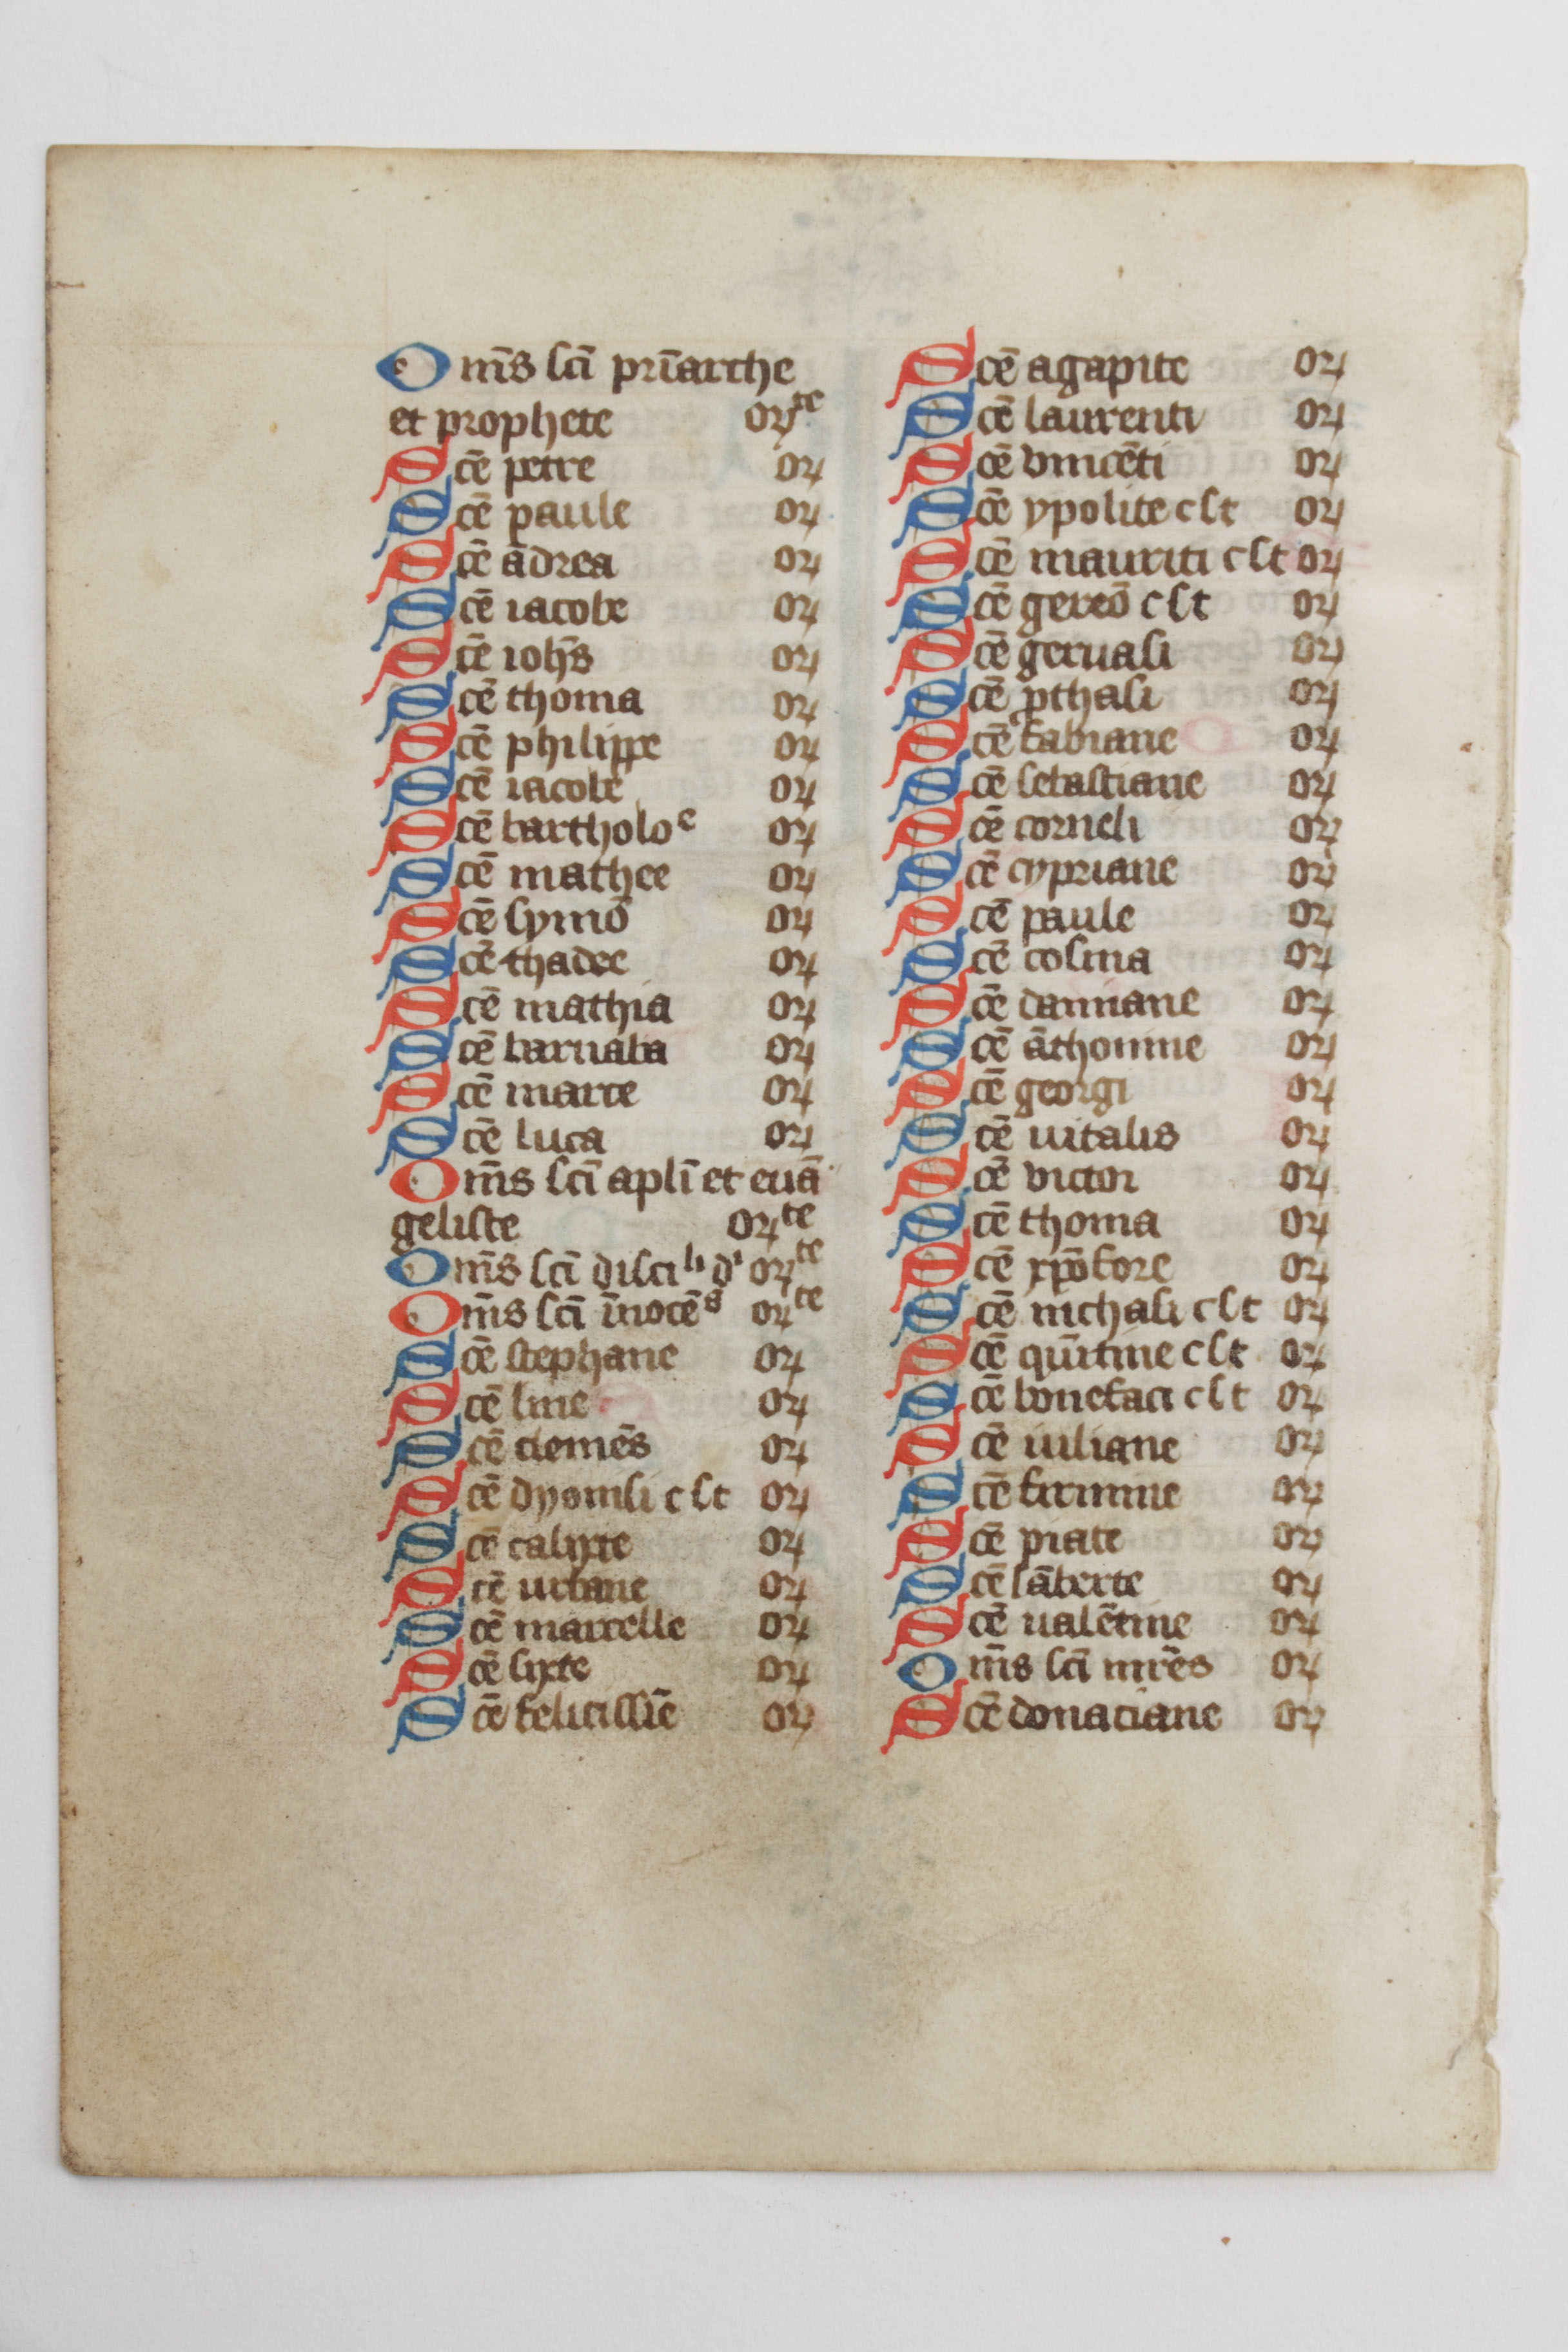 Om̄s sc̄i pr̄iarche
et prophete orꝭ te
Scē petre or
Scē paule or
Scē ādrea or
Scē iacobe or
Scē ioh̄s or
Scē thoma or
Scē philippe or
Scē iacobe or
Scē bartholoᵉ or
Scē mathee or
Scē symō or
Scē thadee or
Scē mathia or
Scē barnaba or
Scē marce or
Scē luca or
Om̄s sc̄i apl̄i et euā
geliste or te
Om̄s sc̄i disciˡⁱ dⁱ or te
Om̄s sc̄i īnocēˢ or te
Scē stephane or
Scē line or
Scē clemēs or
Scē dyonisi c s t or
Scē calixte or
Scē urbane or
Scē marcelle or
Scē sixte or
Scē felicissīe or
Scē agapite or
Scē laurenti or
Scē vincēti or
Scē ypolite c s t or
Scē mauriti c s t or
Scē gereō c s t or
Scē geruasi or
Scē ꝓthasi or
Scē fabiane or
Scē sebastiane or
Scē corneli or
Scē cypriane or
Scē paule or
Scē cosma or
Scē damiane or
Scē āthonine or
Scē georgi or
Scē uitalis or
Scē victor or
Scē thoma or
Scē xpōfore or
Scē nichasi c s t or
Scē qūitine c s t or
Scē bonefaci c s t or
Scē iuliane or
Scē firmine or
Scē piate or
Scē lāberte or
Scē ualētine or
Om̄s sc̄i mr̄es or
Scē donatiane or